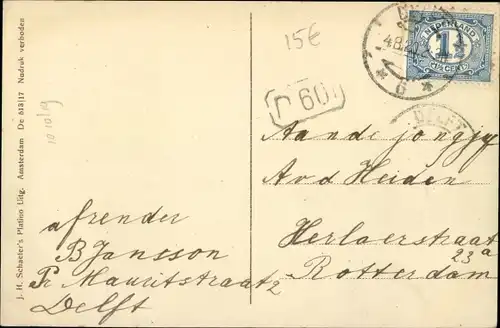 J. H. Schaefer's Platino Uitg. Amsterdam De 613|17 Nadruk verboden
10 10/19
15€
P 60
NEDERLAND
1½
1½ CENT
4.8.20.
6
DELFT
Aan de jongjuf
A v d Heiden
Herlaerstraat
23a
Rotterdam
afzender
B Jansson
Pr Mauritstraat 2
Delft